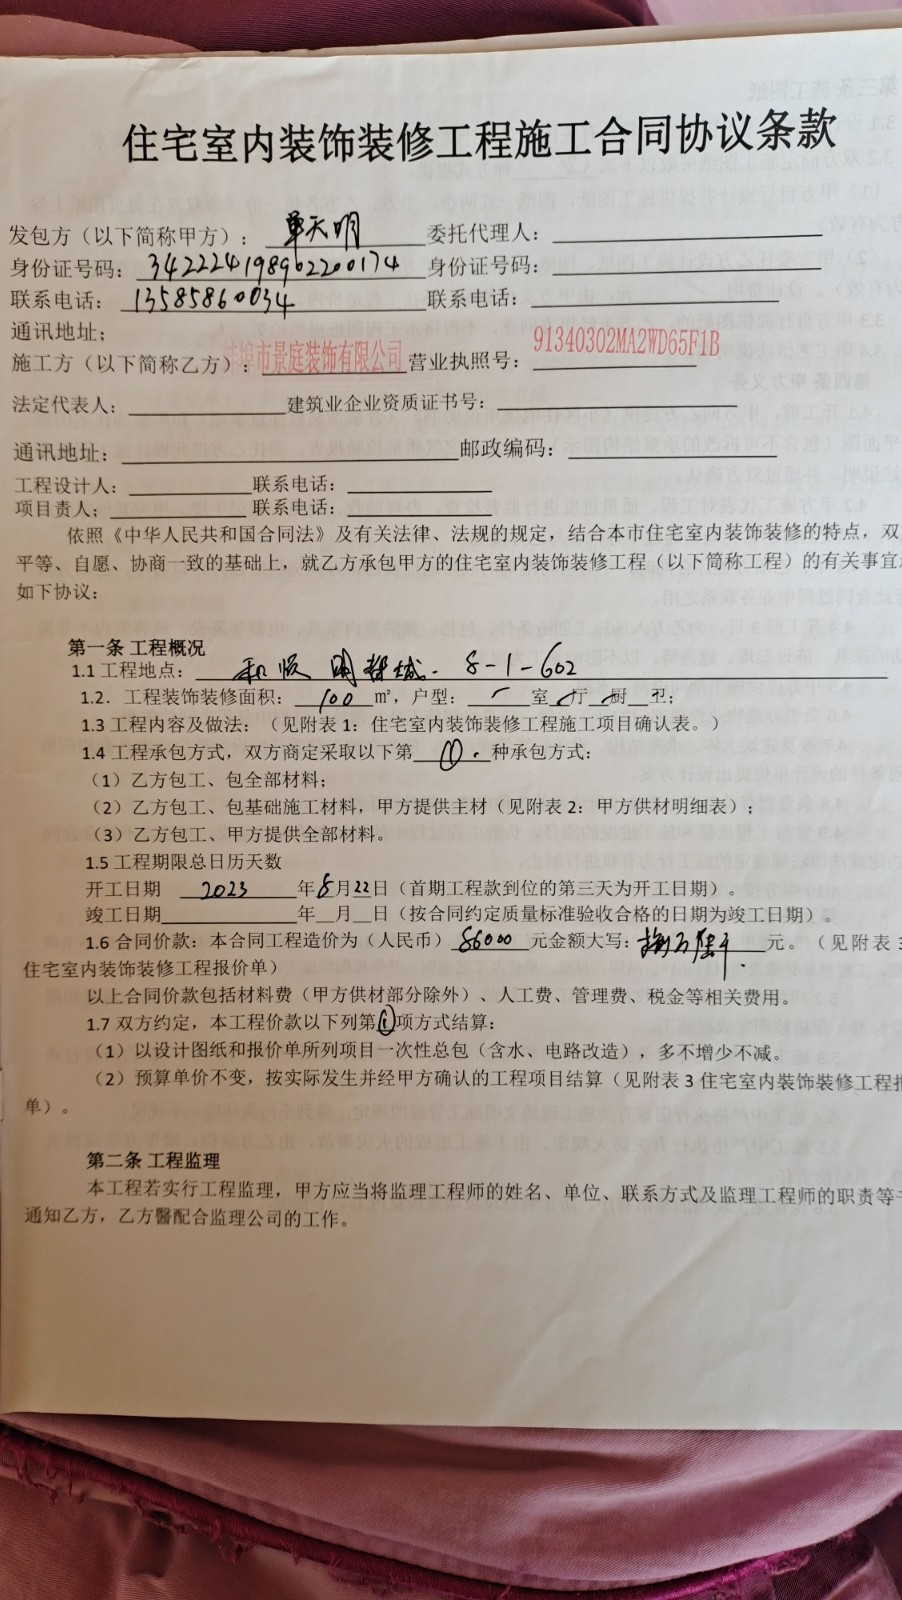 住宅室内装饰装修工程施工合同协议条款
发包方（以下简称甲方）：单天明 委托代理人：
身份证号码：342224198902200174 身份证号码：
联系电话：13585860034 联系电话：
通讯地址；
施工方（以下简称乙方）：蚌埠市景庭装饰有限公司 营业执照号：91340302MA2WD65F1B
法定代表人： 建筑业企业资质证书号：
通讯地址： 邮政编码：
工程设计人： 联系电话：
项目责人； 联系电话：
依照《中华人民共和国合同法》及有关法律、法规的规定，结合本市住宅室内装饰装修的特点，双
平等、自愿、协商一致的基础上，就乙方承包甲方的住宅室内装饰装修工程（以下简称工程）的有关事宜
如下协议：
第一条 工程概况
1.1 工程地点： 和顺 明都城. 8-1-602
1.2．工程装饰装修面积：100 ㎡，户型： 室 厅 厨 卫；
1.3 工程内容及做法：（见附表 1：住宅室内装饰装修工程施工项目确认表。）
1.4 工程承包方式，双方商定采取以下第 ①. 种承包方式：
（1）乙方包工、包全部材料；
（2）乙方包工、包基础施工材料，甲方提供主材（见附表 2：甲方供材明细表）；
（3）乙方包工、甲方提供全部材料。
1.5 工程期限总日历天数
开工日期 2023 年8月22日（首期工程款到位的第三天为开工日期）。
竣工日期 年 月 日（按合同约定质量标准验收合格的日期为竣工日期）。
1.6 合同价款：本合同工程造价为（人民币） 86000 元金额大写：捌万陆千. 元。（见附表 3
住宅室内装饰装修工程报价单）
以上合同价款包括材料费（甲方供材部分除外）、人工费、管理费、税金等相关费用。
1.7 双方约定，本工程价款以下列第①项方式结算：
（1）以设计图纸和报价单所列项目一次性总包（含水、电路改造），多不增少不减。
（2）预算单价不变，按实际发生并经甲方确认的工程项目结算（见附表 3 住宅室内装饰装修工程报
单）。
第二条 工程监理
本工程若实行工程监理，甲方应当将监理工程师的姓名、单位、联系方式及监理工程师的职责等
通知乙方，乙方醫配合监理公司的工作。